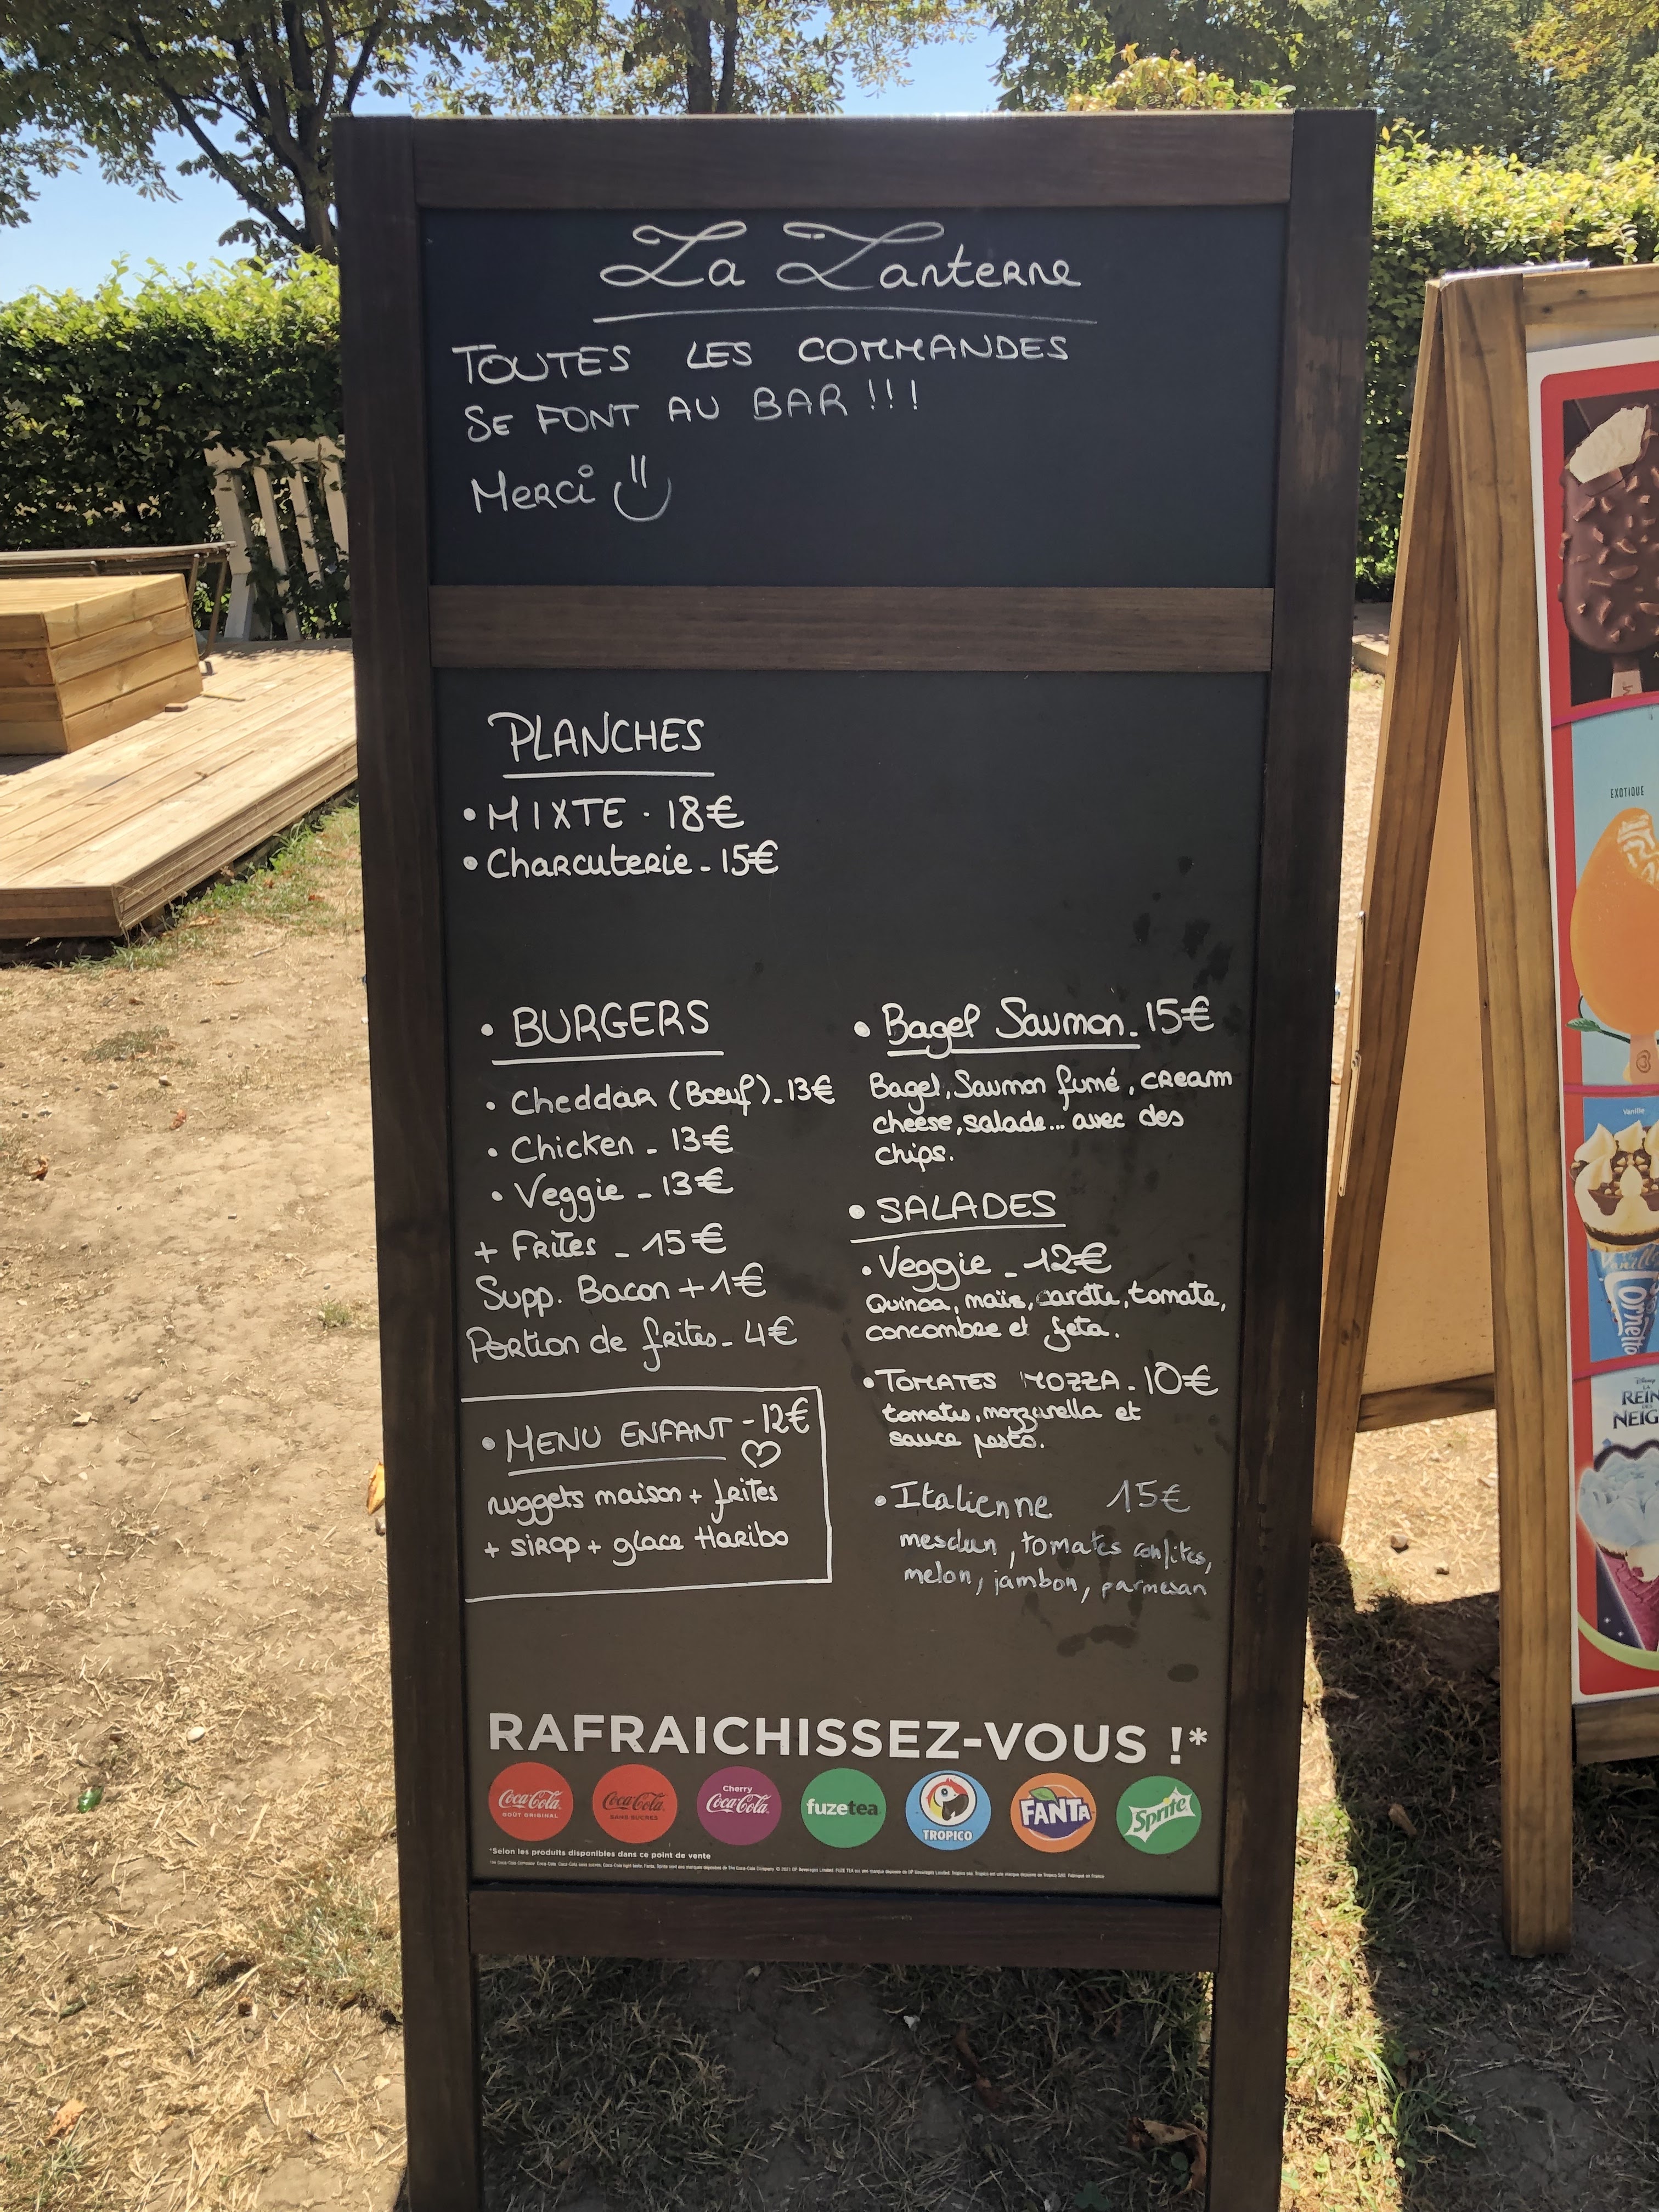 La Lanterne
TOUTES LES COMMANDES
SE FONT AU BAR !!!
Merci
PLANCHES
• MIXTE - 18€
• Charcuterie - 15€
• BURGERS
• Cheddar (Boeuf) - 13€
• Chicken - 13€
• Veggie - 13€
+ Frites - 15€
Supp. Bacon + 1€
Portion de frites - 4€
• MENU ENFANT - 12€
nuggets maison + frites
+ sirop + glace Haribo
• Bagel Saumon - 15€
Bagel, Saumon fumé, cream
cheese, salade... avec des
chips.
• SALADES
• Veggie - 12€
Quinoa, maïs, carotte, tomate,
concombre et feta.
• TOMATES MOZZA - 10€
tomates, mozzarella et
sauce pesto.
• Italienne 15€
mesclun, tomates confites,
melon, jambon, parmesan
RAFRAICHISSEZ-VOUS !*
Coca-Cola GOÛT ORIGINAL
Coca-Cola SANS SUCRES
Cherry Coca-Cola
fuzetea
TROPICO
FANTA
Sprite
*Selon les produits disponibles dans ce point de vente
EXOTIQUE
Vanille
Disney
LA
REIN
DES
NEIG